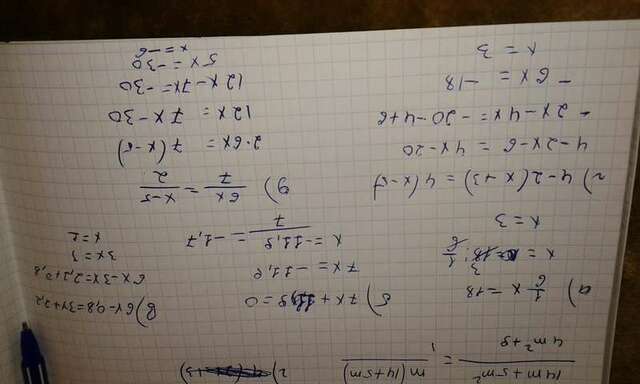 14m+5m² / 4m²+9 = m(14+5m)
г)
а) 1/6 x = 18
x = 3
б) 7x + 11,9 = 0
7x = -11,9
x = -11,9 / 7 = -1,7
в) 6x-0,8=3x+2,2
6x-3x=2,2+0,8
3x=3
x=1
г) 4-2(x+3) = 4(x-5)
4-2x-6 = 4x-20
-2x-4x = -20-4+6
-6x = -18
x = 3
д) 6x/7 = x-5/2
2·6x = 7(x-5)
12x = 7x-30
12x-7x=-30
5x=-30
x=-6